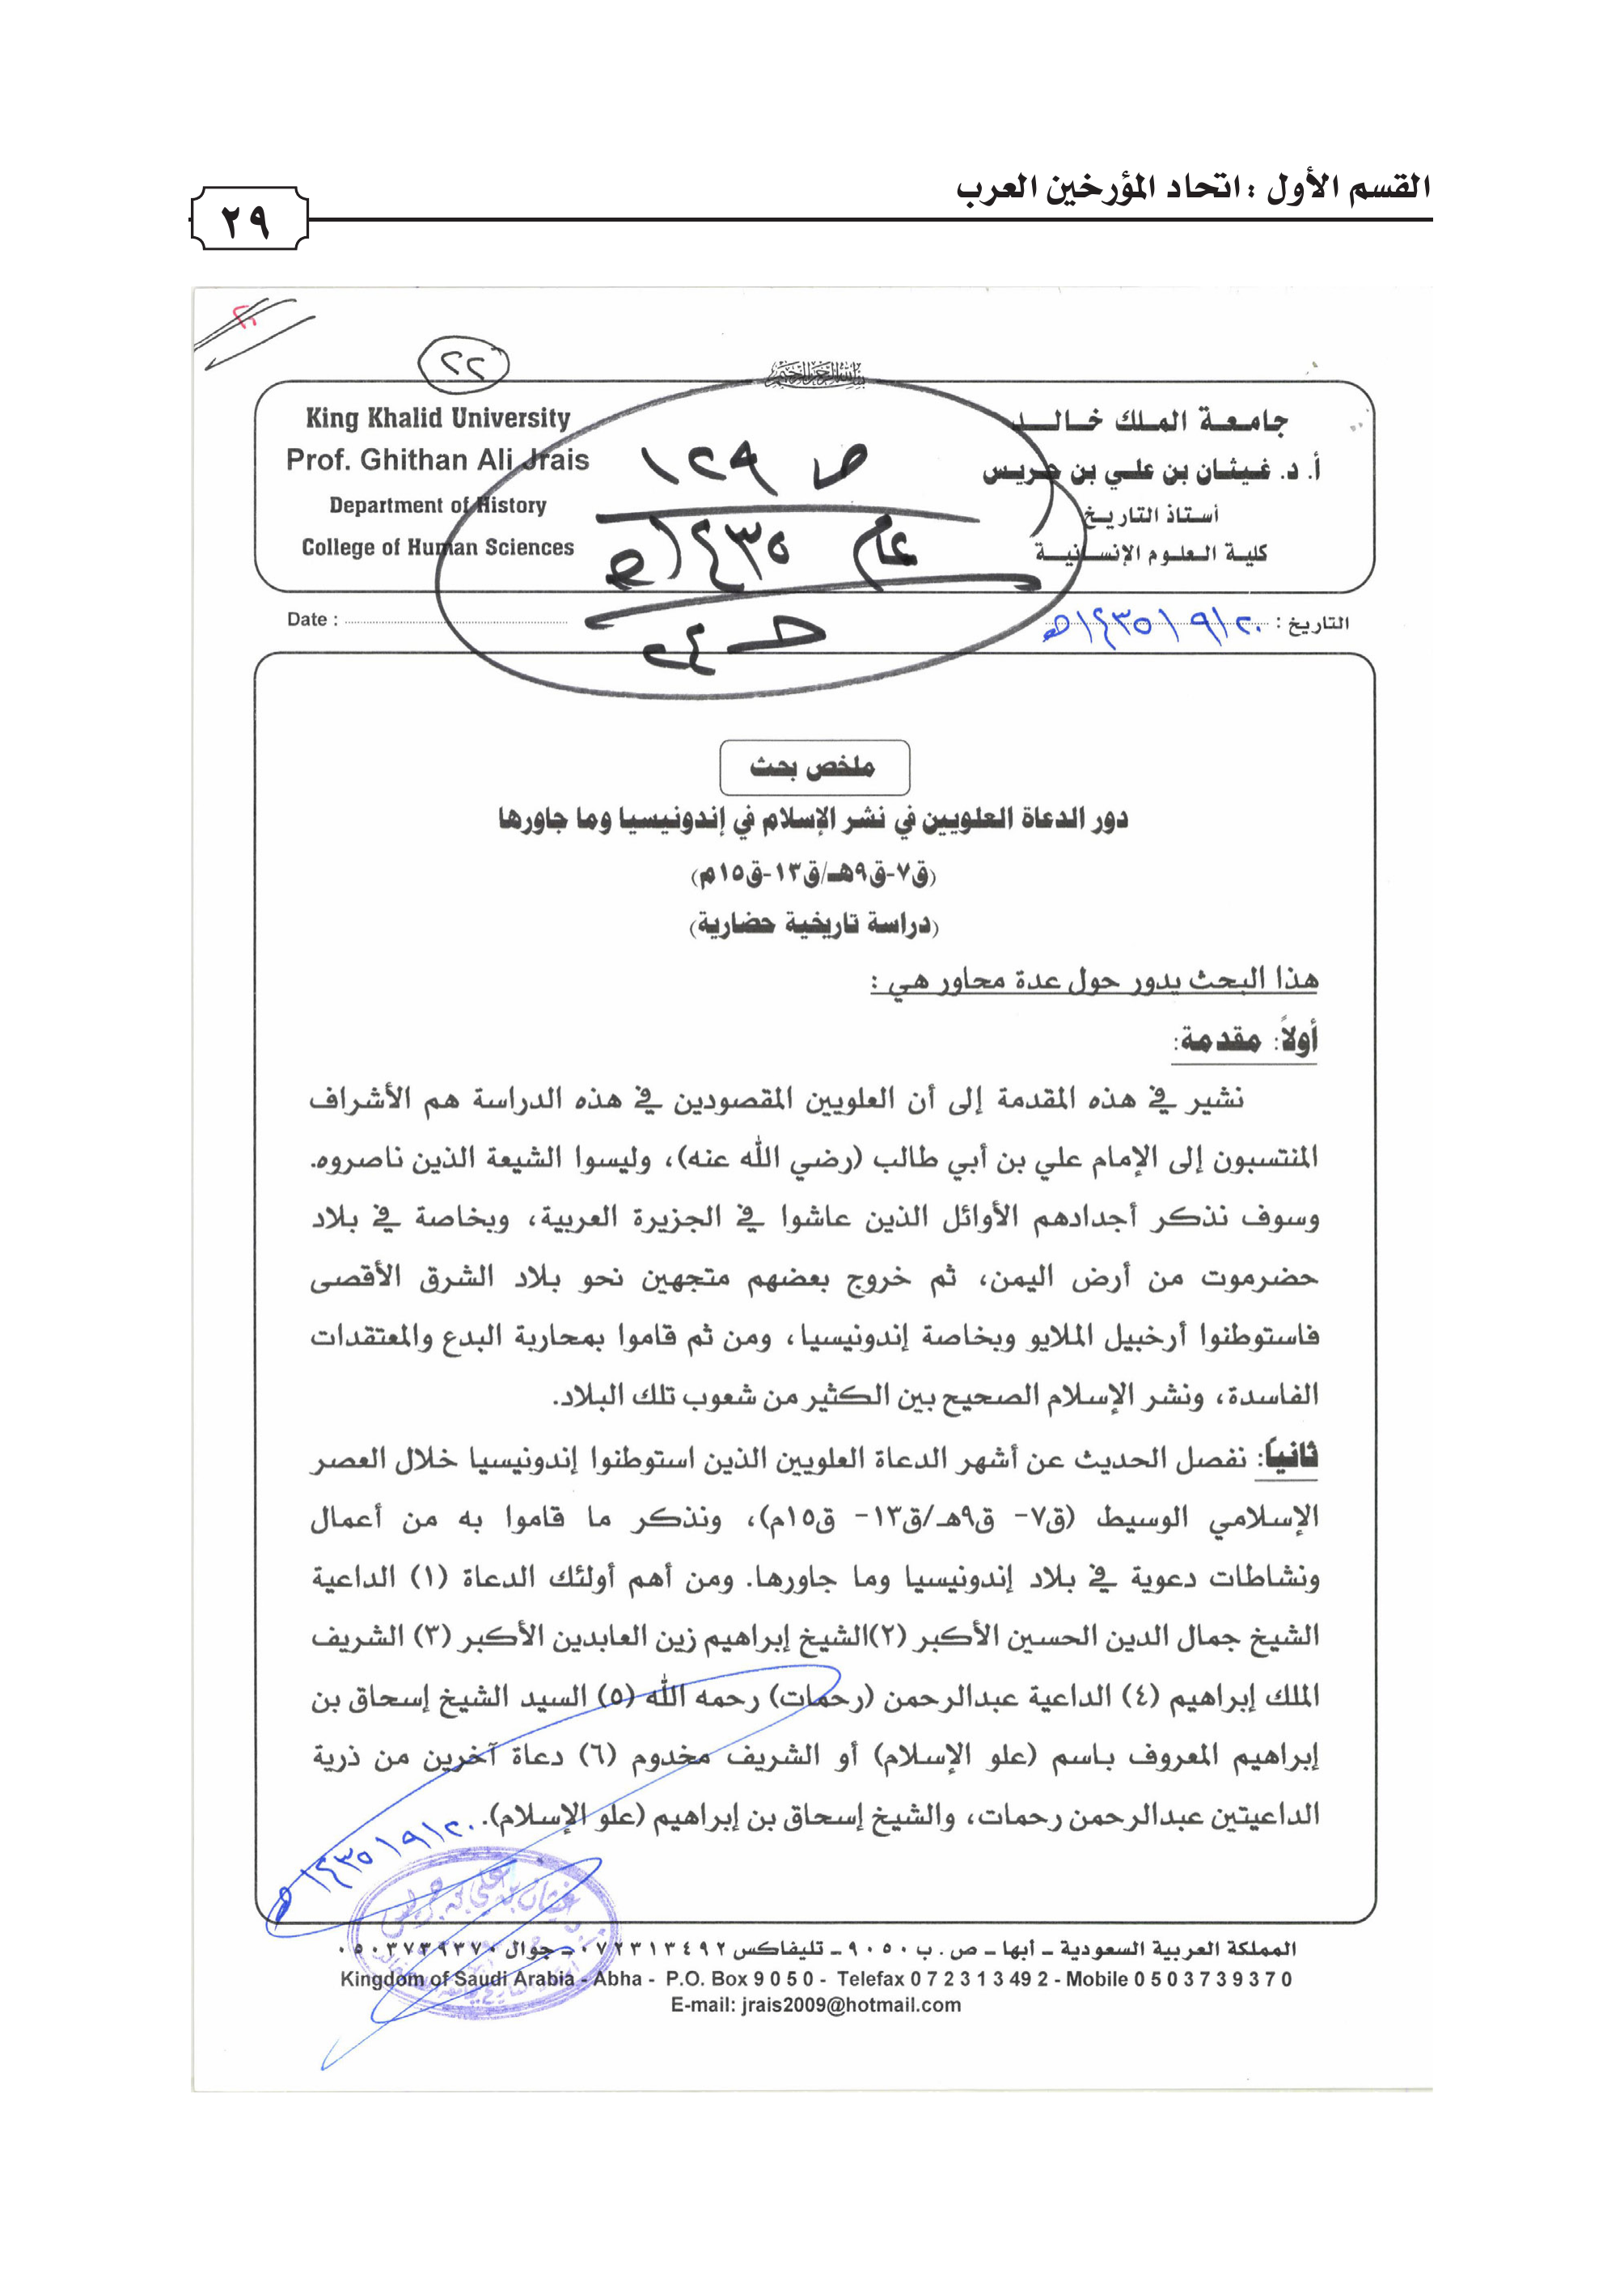 القسم الأول : اتحاد المؤرخين العرب
٢٩
٢٢
بسم الله الرحمن الرحيم
جامعة الملك خالد
أ. د. غيثان بن علي بن جريس
أستاذ التاريخ
كلية العلوم الإنسانية
King Khalid University
Prof. Ghithan Ali Jrais
Department of History
College of Human Sciences
ص ١٢٩
عام ١٤٣٥هـ
حـ ٢٤
التاريخ : ٢٠/٩/١٤٣٥هـ
Date :
ملخص بحث
دور الدعاة العلويين في نشر الإسلام في إندونيسيا وما جاورها
(ق٧-ق٩هـ/ق١٣-ق١٥م)
(دراسة تاريخية حضارية)
هذا البحث يدور حول عدة محاور هي :
أولاً: مقدمة:
نشير في هذه المقدمة إلى أن العلويين المقصودين في هذه الدراسة هم الأشراف
المنتسبون إلى الإمام علي بن أبي طالب (رضي الله عنه)، وليسوا الشيعة الذين ناصروه.
وسوف نذكر أجدادهم الأوائل الذين عاشوا في الجزيرة العربية، وبخاصة في بلاد
حضرموت من أرض اليمن، ثم خروج بعضهم متجهين نحو بلاد الشرق الأقصى
فاستوطنوا أرخبيل الملايو وبخاصة إندونيسيا، ومن ثم قاموا بمحاربة البدع والمعتقدات
الفاسدة، ونشر الإسلام الصحيح بين الكثير من شعوب تلك البلاد.
ثانياً: نفصل الحديث عن أشهر الدعاة العلويين الذين استوطنوا إندونيسيا خلال العصر
الإسلامي الوسيط (ق٧- ق٩هـ/ق١٣- ق١٥م)، ونذكر ما قاموا به من أعمال
ونشاطات دعوية في بلاد إندونيسيا وما جاورها. ومن أهم أولئك الدعاة (١) الداعية
الشيخ جمال الدين الحسين الأكبر (٢)الشيخ إبراهيم زين العابدين الأكبر (٣) الشريف
الملك إبراهيم (٤) الداعية عبدالرحمن (رحمات) رحمه الله (٥) السيد الشيخ إسحاق بن
إبراهيم المعروف باسم (علو الإسلام) أو الشريف مخدوم (٦) دعاة آخرين من ذرية
الداعيتين عبدالرحمن رحمات، والشيخ إسحاق بن إبراهيم (علو الإسلام).
٢٠/٩/١٤٣٥هـ
أ.د. غيثان بن علي بن جريس
المملكة العربية السعودية ـ أبها ـ ص . ب ٩٠٥٠ ـ تليفاكس ٠٧٢٣١٣٤٩٢ ـ جوال ٠٥٠٣٧٣٩٣٧٠
Kingdom of Saudi Arabia - Abha - P.O. Box 9 0 5 0 - Telefax 0 7 2 3 1 3 49 2 - Mobile 0 5 0 3 7 3 9 3 7 0
E-mail: jrais2009@hotmail.com